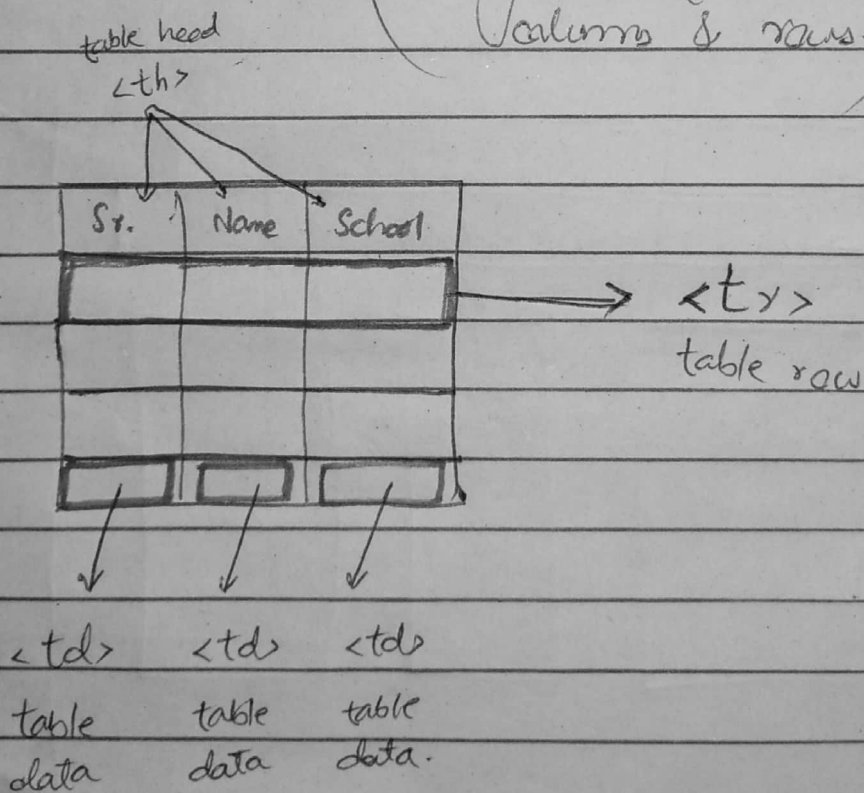 Column & rows.
table head
<th>
Sr. Name School
<tr>
table row
<td> <td> <td>
table table table
data data data.